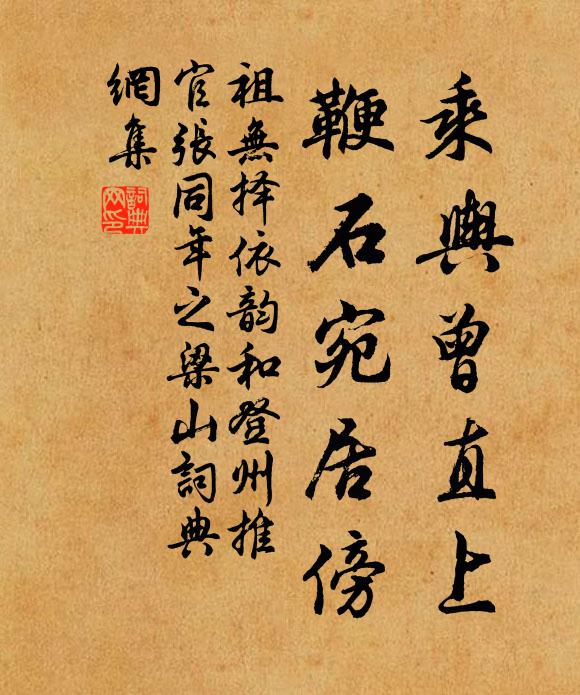 乘輿曾直上
鞭石宛居傍
祖無择依韵和登州推
官張同年之梁山詞典
網集
詞典网印